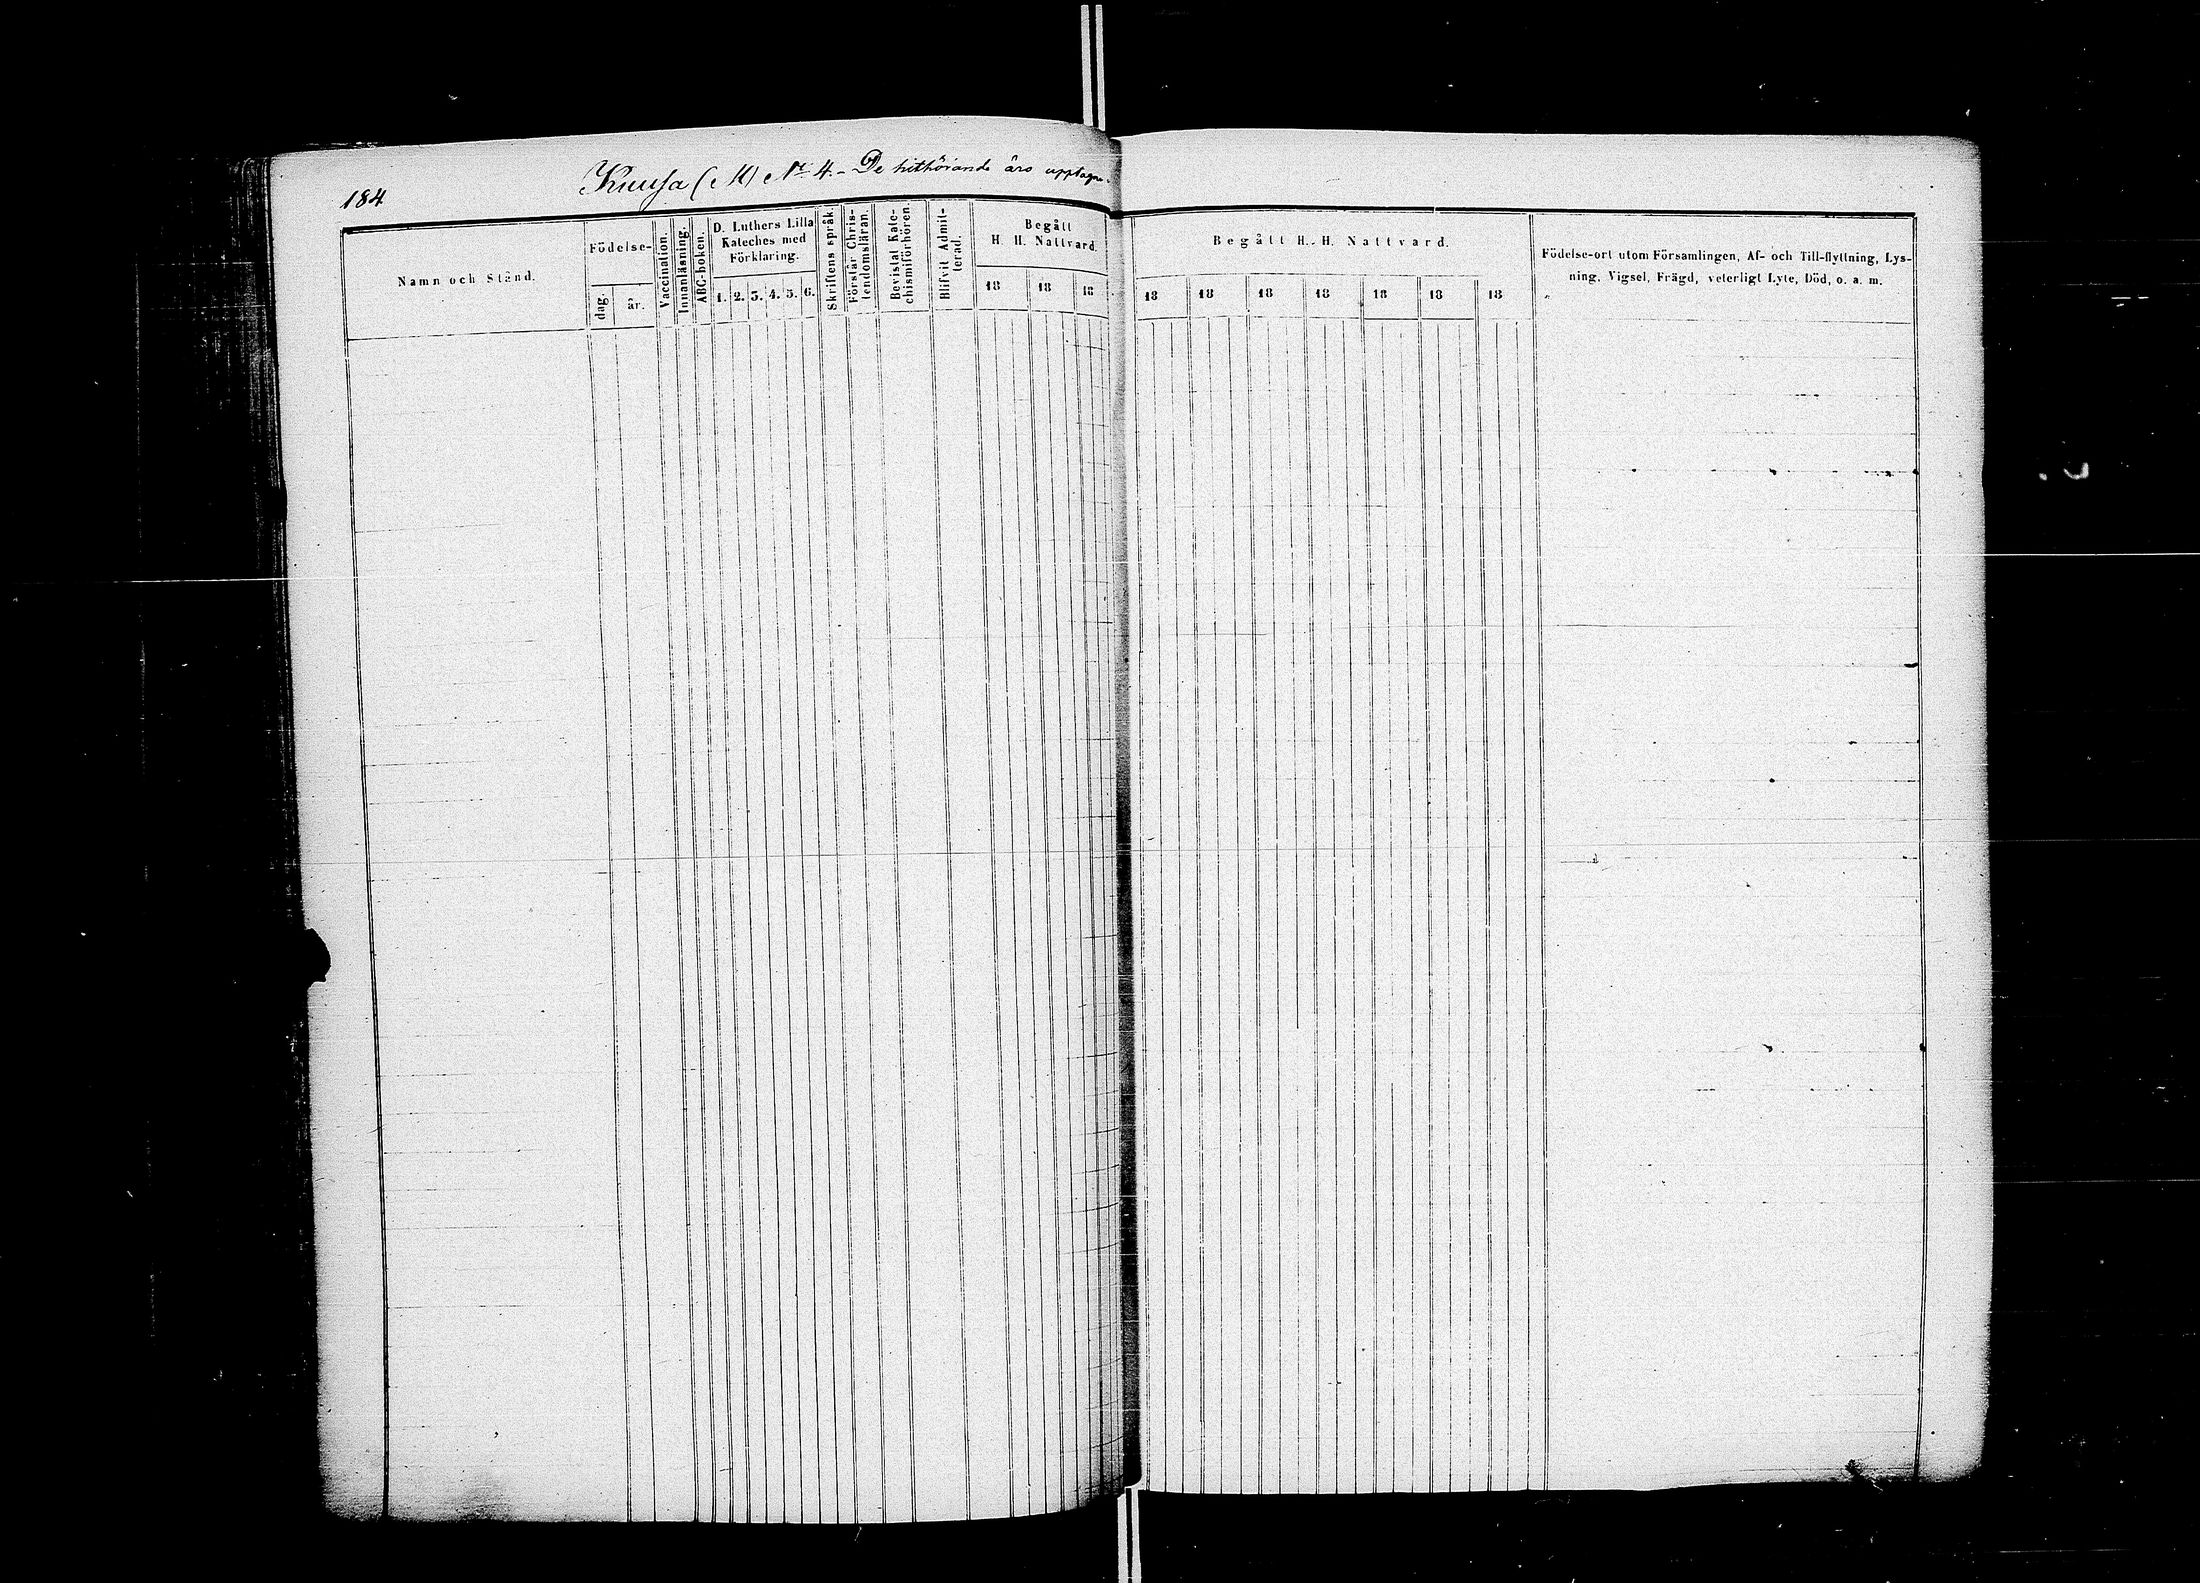 184
Kuusa (M) No 4. – De hithörande äro upptagne
Namn och Stånd.
Födelse-
dag.
år.
Vaccination.
Innanläsning.
ABC-boken.
D. Luthers Lilla
Kateches med
Förklaring.
1. 2. 3. 4. 5. 6.
Skriftens språk.
Förstår Chris-
tendomsläran.
Bevistat Kate-
chismiförhören.
Blifvit Admit-
terad.
Begått
H. H. Nattvard.
18 18 18
Begått H. H. Nattvard.
18 18 18 18 18 18 18
Födelse-ort utom Församlingen, Af- och Till-flyttning, Lys-
ning, Vigsel, Frägd, veterligt Lyte, Död, o. a. m.